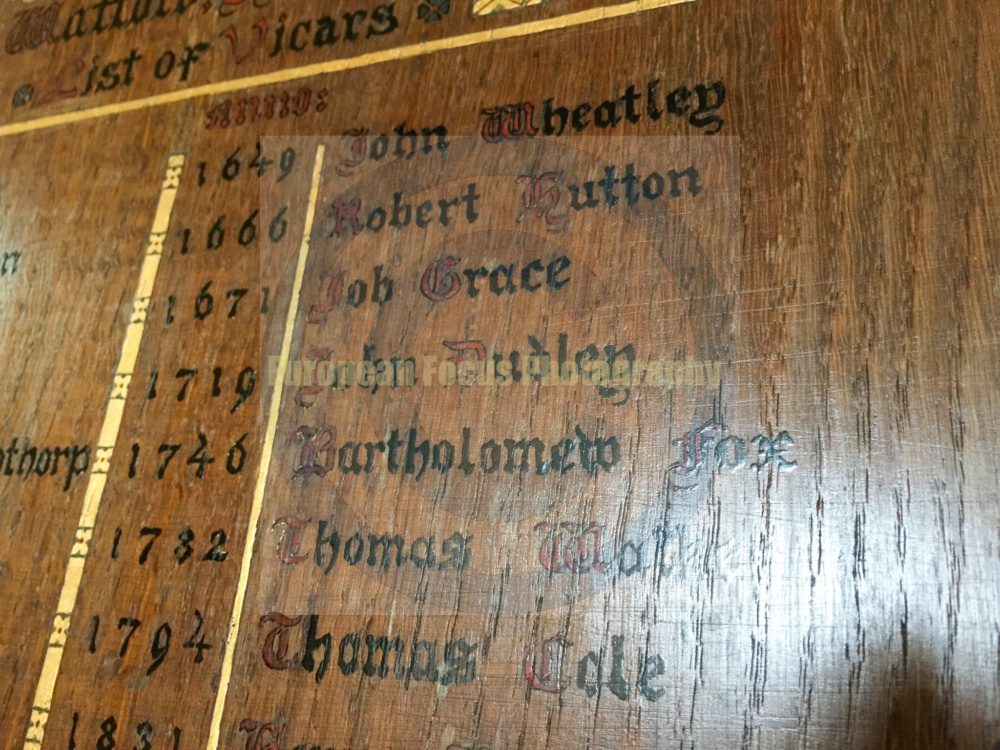 List of Vicars
Anno:
1649 John Wheatley
1666 Robert Hutton
1671 Job Grace
1719 John Dudley
European Focus Photography
1746 Bartholomew Fox
1782 Thomas
1794 Thomas Cole
1831